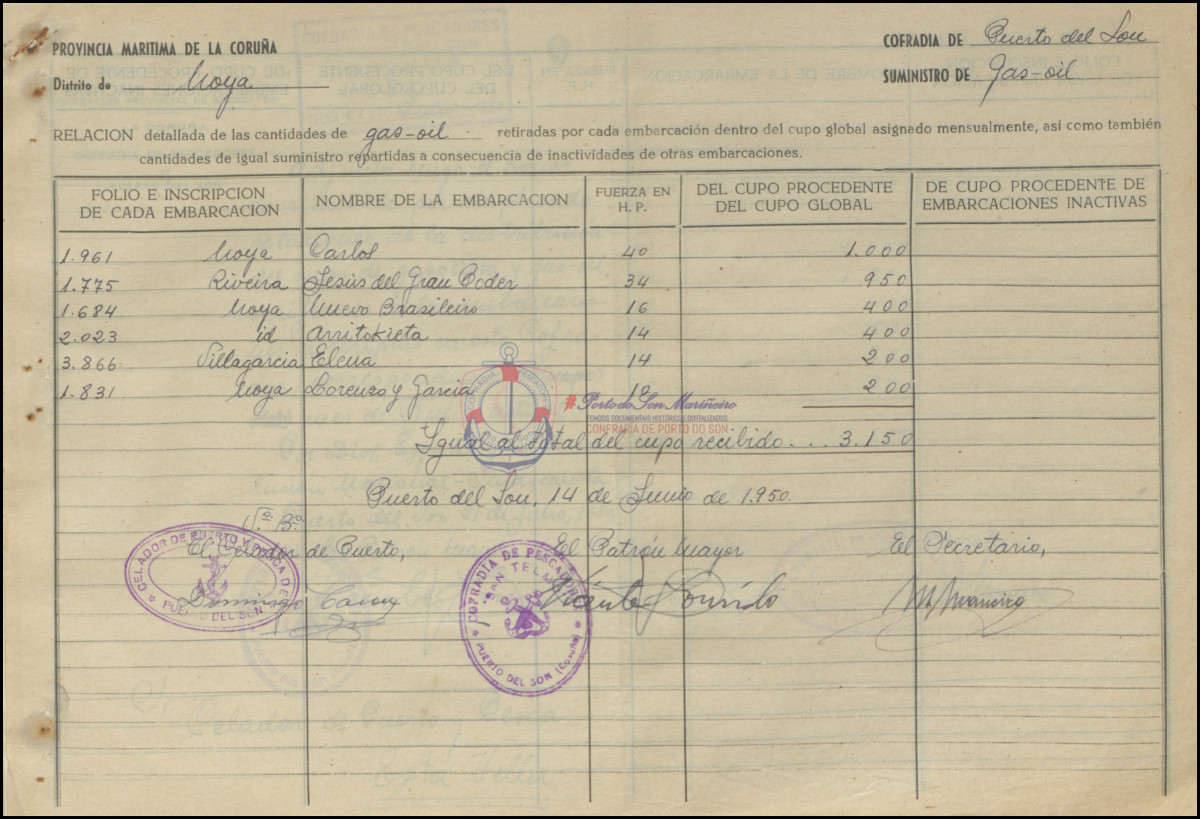 PROVINCIA MARITIMA DE LA CORUÑA
COFRADIA DE Puerto del Son
Distrito de Noya
SUMINISTRO DE gas-oil
RELACION detallada de las cantidades de gas-oil retiradas por cada embarcación dentro del cupo global asignado mensualmente, así como también
cantidades de igual suministro repartidas a consecuencia de inactividades de otras embarcaciones.
FOLIO E INSCRIPCION DE CADA EMBARCACION NOMBRE DE LA EMBARCACION FUERZA EN H. P. DEL CUPO PROCEDENTE DEL CUPO GLOBAL DE CUPO PROCEDENTE DE EMBARCACIONES INACTIVAS
1.961 Noya Carlos 40 1.000
1.775 Riveira Jesús del Gran Poder 34 950
1.684 Noya Nuevo Brasileiro 16 400
2.023 id Arritokieta 14 400
3.866 Villagarcia Elena 14 200
1.831 Noya Lorenzo y Garcia 10 200
# Porto do Son Mariñeiro
FONDOS DOCUMENTAIS HISTÓRICOS DIXITALIZADOS
CONFRARIA DE PORTO DO SON
Igual al total del cupo recibido... 3.150
Puerto del Son, 14 de Junio de 1.950.
V.º B.º
El Celador de Puerto, El Patrón Mayor El Secretario,
CELADOR DE PUERTO Y PESCA DE
PUERTO DEL SON
COFRADIA DE PESCADORES
"SAN TELMO"
PUERTO DEL SON (Coruña)
Domingo
Vicente